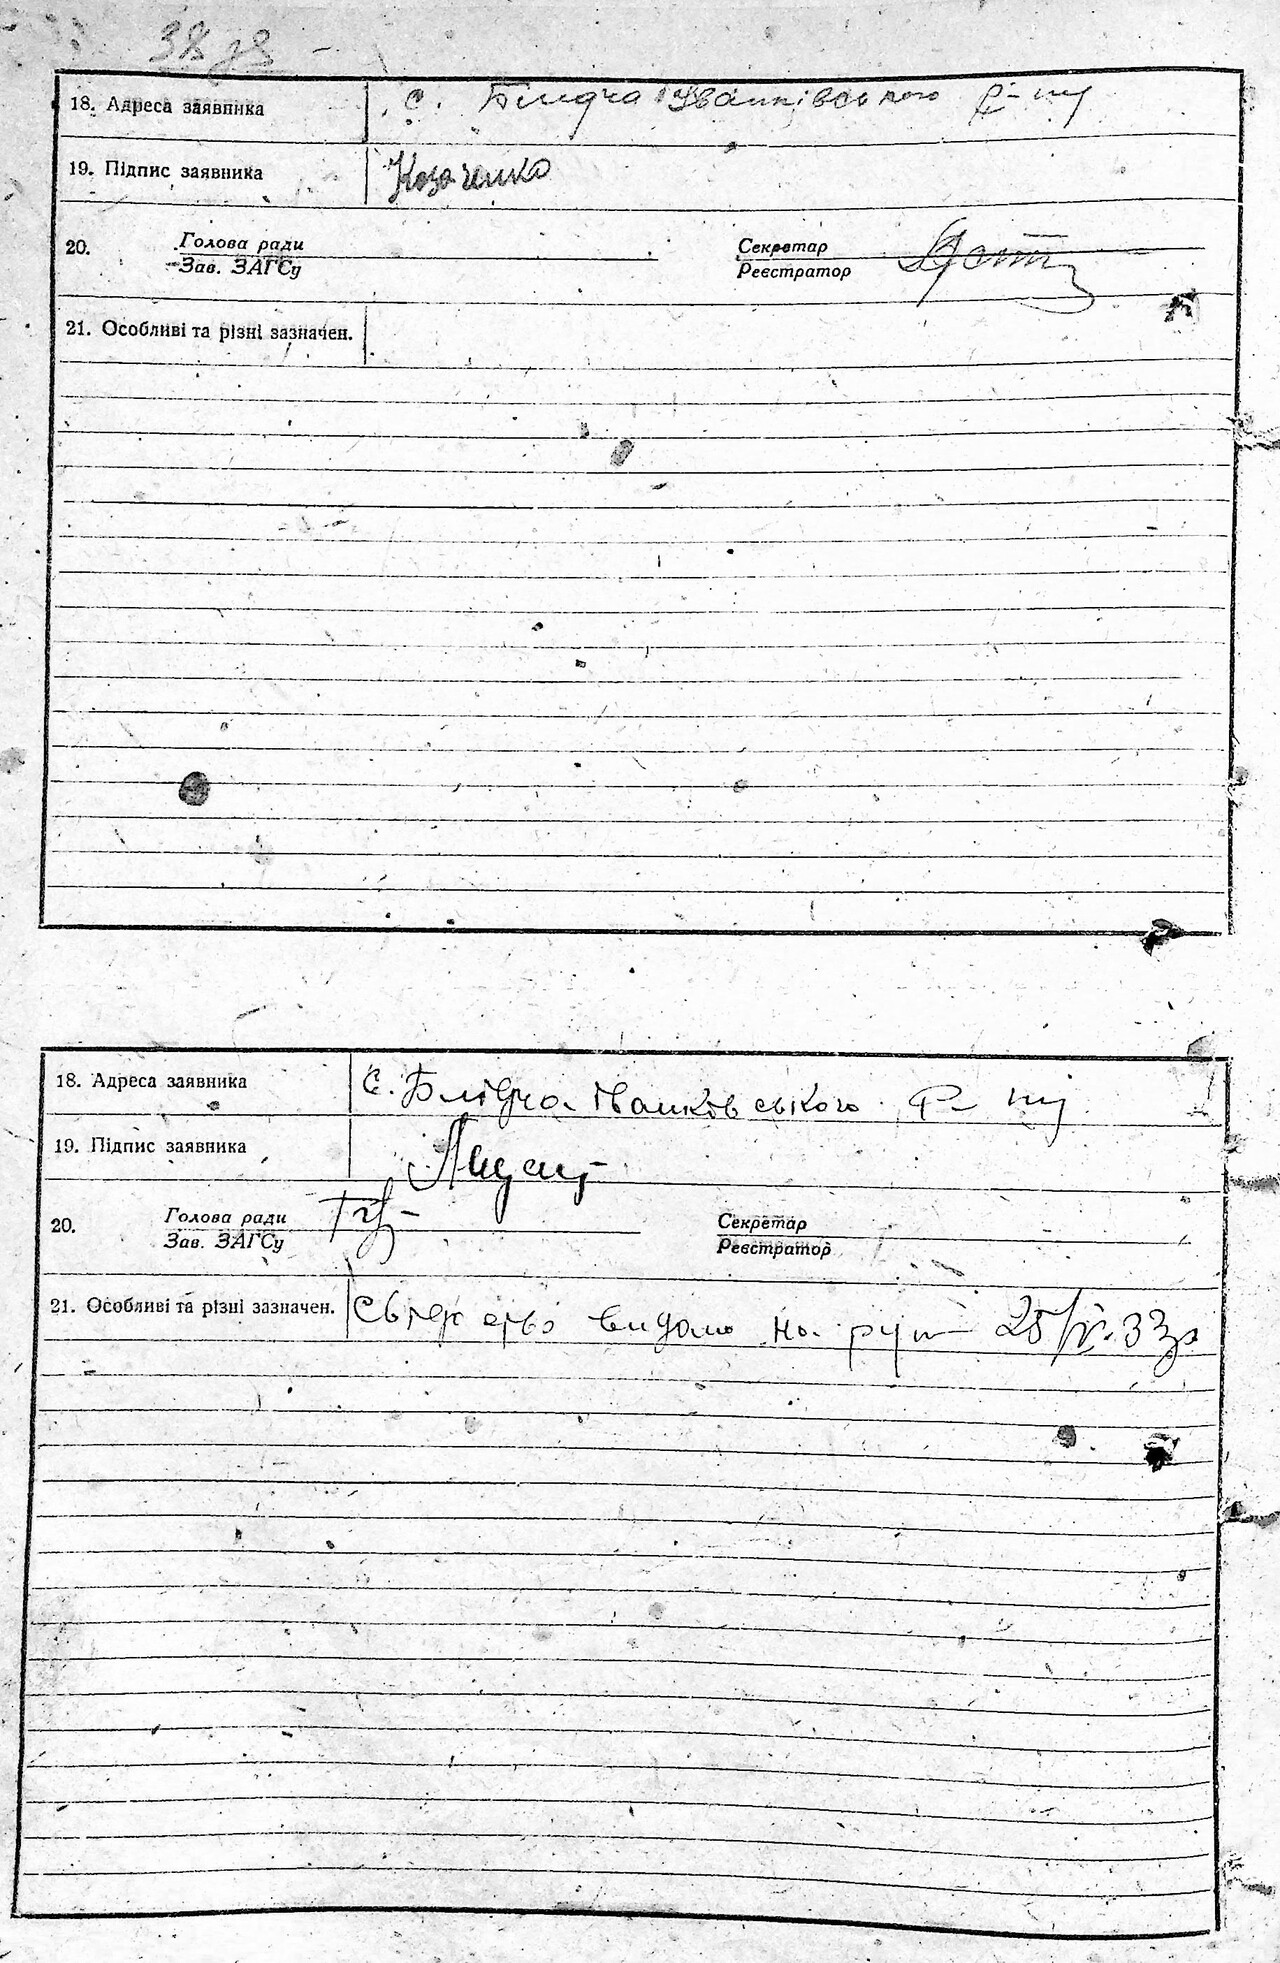 38 зв
18. Адреса заявника с. Блидча Іванківського р-ну
19. Підпис заявника Козаченко
20. Голова ради Секретар
Зав. ЗАГСу Реєстратор
21. Особливі та різні зазначен.
18. Адреса заявника С. Блідча Іванківського р-ну
19. Підпис заявника
20. Голова ради Секретар
Зав. ЗАГСу Реєстратор
21. Особливі та різні зазначен. видано на руки 25/IV-33р